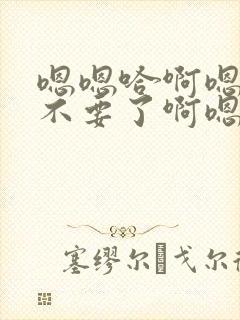 嗯嗯哈啊嗯
不要了啊嗯
塞缪尔·戈尔